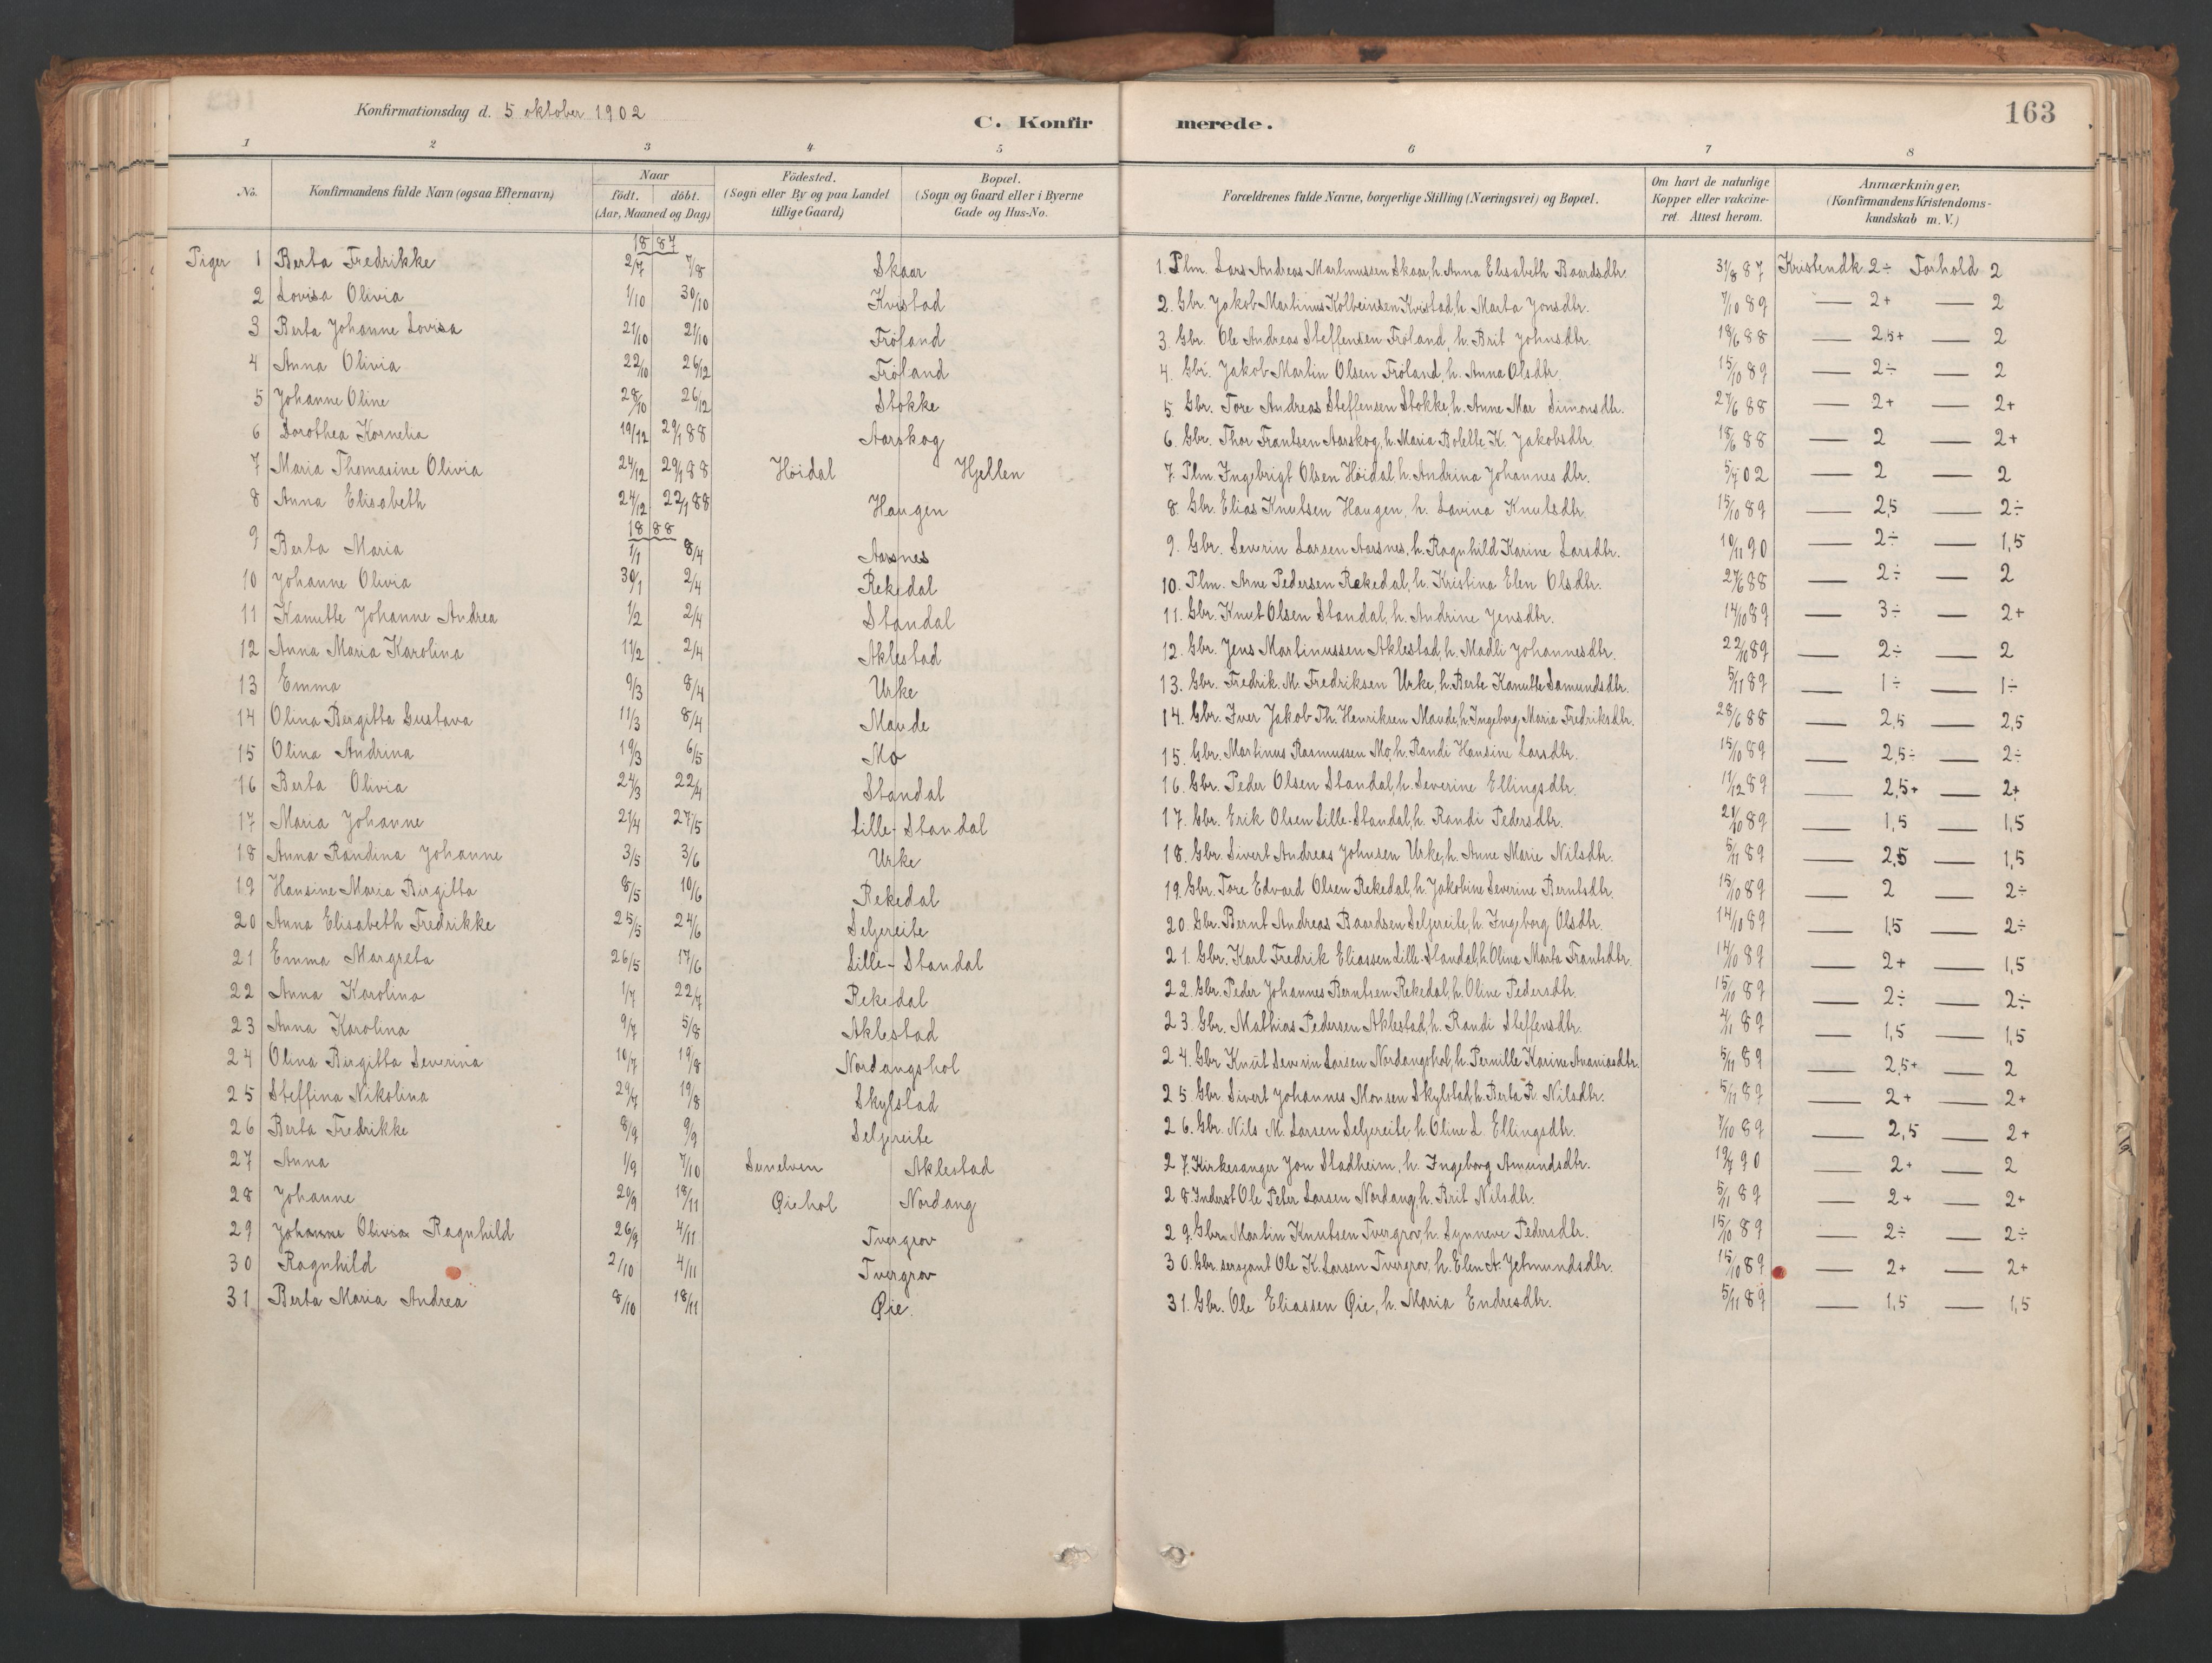 163
Konfirmationsdag d. 5 oktober 1902
C. Konfirmerede.
1 2 3 4 5 6 7 8
No.
Konfirmandens fulde Navn (ogsaa Efternavn)
Naar
födt. döbt.
(Aar, Maaned og Dag)
Födested.
(Sogn eller By og paa Landet
tillige Gaard)
Bopæl.
(Sogn og Gaard eller i Byerne
Gade og Hus-No.
Forældrenes fulde Navne, borgerlige Stilling (Næringsvei) og Bopæl.
Om havt de naturlige
Kopper eller vakcine-
ret. Attest herom.
Anmærkninger,
(Konfirmandens Kristendoms-
kundskab m. V.)
1887
Piger 1 Berta Fredrikke 2/7 7/8 Skaar 1. Plm. Lars Andreas Martinussen Skaar, h. Anna Elisabeth Baardsdtr. 31/8 87 Kristendk. 2÷ Forhold 2
2 Lovisa Olivia 1/10 30/10 Kvistad 2. Gbr. Jakob Martinus Kolbeinsen Kvistad, h. Marta Jonsdtr. 7/10 89 — 2+ — 2
3 Berta Johanne Lovisa 21/10 21/10 Fröland 3. Gbr. Ole Andreas Steffensen Fröland, h. Brit Johnsdtr. 18/6 88 — 2,5+ — 2
4 Anna Olivia 22/10 26/12 Fröland 4. Gbr. Jakob Martin Olsen Fröland, h. Anna Olsdtr. 15/10 89 — 2÷ — 2
5 Johanne Oline 28/10 26/12 Stokke 5. Gbr. Tore Andreas Steffensen Stokke, h. Anne Mar Simonsdtr. 27/6 88 — 2+ — 2+
6 Dorothea Kornelia 19/12 29/1 88 Aarskog 6. Gbr. Thor Frantsen Aarskog, h. Maria Bolette K. Jakobsdtr. 18/6 88 — 2 — 2+
7 Maria Thomasine Olivia 24/12 29/1 88 Höidal Hjellen 7. Plm. Ingebrigt Olsen Höidal, h. Andrina Johannesdtr. 5/7 02 — 2 — 2
8 Anna Elisabeth 24/12 22/1 88 Haugen 8. Gbr. Elias Knutsen Haugen, h. Lavina Knutsdtr. 15/10 89 — 2,5 — 2÷
1888
9 Berta Maria 1/1 8/4 Aarsnes 9. Gbr. Severin Larsen Aarsnes, h. Ragnhild Karine Larsdtr. 10/11 90 — 2÷ — 1,5
10 Johanne Olivia 30/1 2/4 Rekedal 10. Plm. Arne Pedersen Rekedal, h. Kristina Elen Olsdtr. 27/6 88 — 2÷ — 2
11 Kanutte Johanne Andrea 1/2 2/4 Standal 11. Gbr. Knut Olsen Standal, h. Andrine Jensdtr. 14/10 89 — 3÷ — 2+
12 Anna Maria Karolina 11/2 2/4 Aklestad 12. Gbr. Jens Martinussen Aklestad, h. Madli Johannesdtr. 22/10 89 — 2÷ — 2
13 Emma 9/3 8/4 Urke 13. Gbr. Fredrik M. Fredriksen Urke, h. Berte Kanutte Samundsdtr. 5/11 89 — 1÷ — 1÷
14 Olina Birgitta Gustava 11/3 8/4 Maude 14. Gbr. Iver Jakob Th. Henriksen Maude, h. Ingeborg Maria Fredriksdtr. 28/6 88 — 2,5 — 2,5
15 Olina Andrina 19/3 6/5 Mo 15. Gbr. Martinus Rasmussen Mo, h. Randi Hansine Larsdtr. 15/10 89 — 2,5÷ — 2÷
16 Berta Olivia 24/3 22/4 Standal 16. Gbr. Peder Olsen Standal, h. Severine Ellingsdtr. 11/12 89 — 2,5+ — 2+
17 Maria Johanne 21/4 27/5 Lille-Standal 17. Gbr. Erik Olsen Lille-Standal, h. Randi Pedersdtr. 21/10 89 — 1,5 — 1,5
18 Anna Randina Johanne 3/5 3/6 Urke 18. Gbr. Sivert Andreas Johnsen Urke, h. Anne Marie Nilsdtr. 5/11 89 — 2,5 — 1,5
19 Hansine Maria Birgitta 8/5 10/6 Rekedal 19. Gbr. Tore Edvard Olsen Rekedal, h. Jakobine Severine Berntsdtr. 15/10 89 — 2 — 2÷
20 Anna Elisabeth Fredrikke 25/5 24/6 Seljereite 20. Gbr. Bernt Andreas Baardsen Seljereite, h. Ingeborg Olsdtr. 14/10 89 — 1,5 — 2÷
21 Emma Margreta 26/5 17/6 Lille-Standal 21. Gbr. Karl Fredrik Eliassen Lille-Standal, h. Olina Marta Frantsdtr. 14/10 89 — 2+ — 1,5
22 Anna Karolina 1/7 22/7 Rekedal 22. Gbr. Peder Johannes Berntsen Rekedal, h. Oline Pedersdtr. 15/10 89 — 2÷ — 2÷
23 Anna Karolina 9/7 5/8 Aklestad 23. Gbr. Mathias Pedersen Aklestad, h. Randi Steffensdtr. 4/11 89 — 1,5 — 1,5
24 Olina Birgitta Severina 10/7 19/8 Nordangshol 24. Gbr Knut Severin Larsen Nordangshol, h. Pernille Karine Ananiasdtr. 5/11 89 — 2,5+ — 2
25 Steffina Nikolina 29/7 19/8 Skylstad 25. Gbr Sivert Johannes Monsen Skylstad, h. Berta R. Nilsdtr. 5/11 89 — 2+ — 2+
26 Berta Fredrikke 8/9 9/9 Seljereite 26. Gbr. Nils M. Larsen Seljereite, h. Oline L. Ellingsdtr. 7/10 89 — 2,5 — 2+
27 Anna 1/9 7/10 Sunelven Aklestad 27. Kirkesanger Jon Stadheim, h. Ingeborg Amundsdtr. 19/7 90 — 2+ — 2
28 Johanne 20/9 18/11 Øiehol Nordang 28. Inderst Ole Peter Larsen Nordang, h. Brit Nilsdtr. 5/11 89 — 2+ — 2+
29 Johanne Olivia Ragnhild 26/9 4/11 Tvergrov 29. Gbr. Martin Knutsen Tvergrov, h. Synneve Pedersdtr. 15/10 89 — 2÷ — 2÷
30 Ragnhild 2/10 4/11 Tvergrov 30. Gbr. sersjant Ole K. Larsen Tvergrov, h. Elen A. Jetmundsdtr. 15/10 89 — 2+ — 2+
31 Berta Maria Andrea 8/10 18/11 Øie. 31. Gbr. Ole Eliassen Øie, h. Maria Endresdtr. 5/11 89 — 1,5 — 1,5